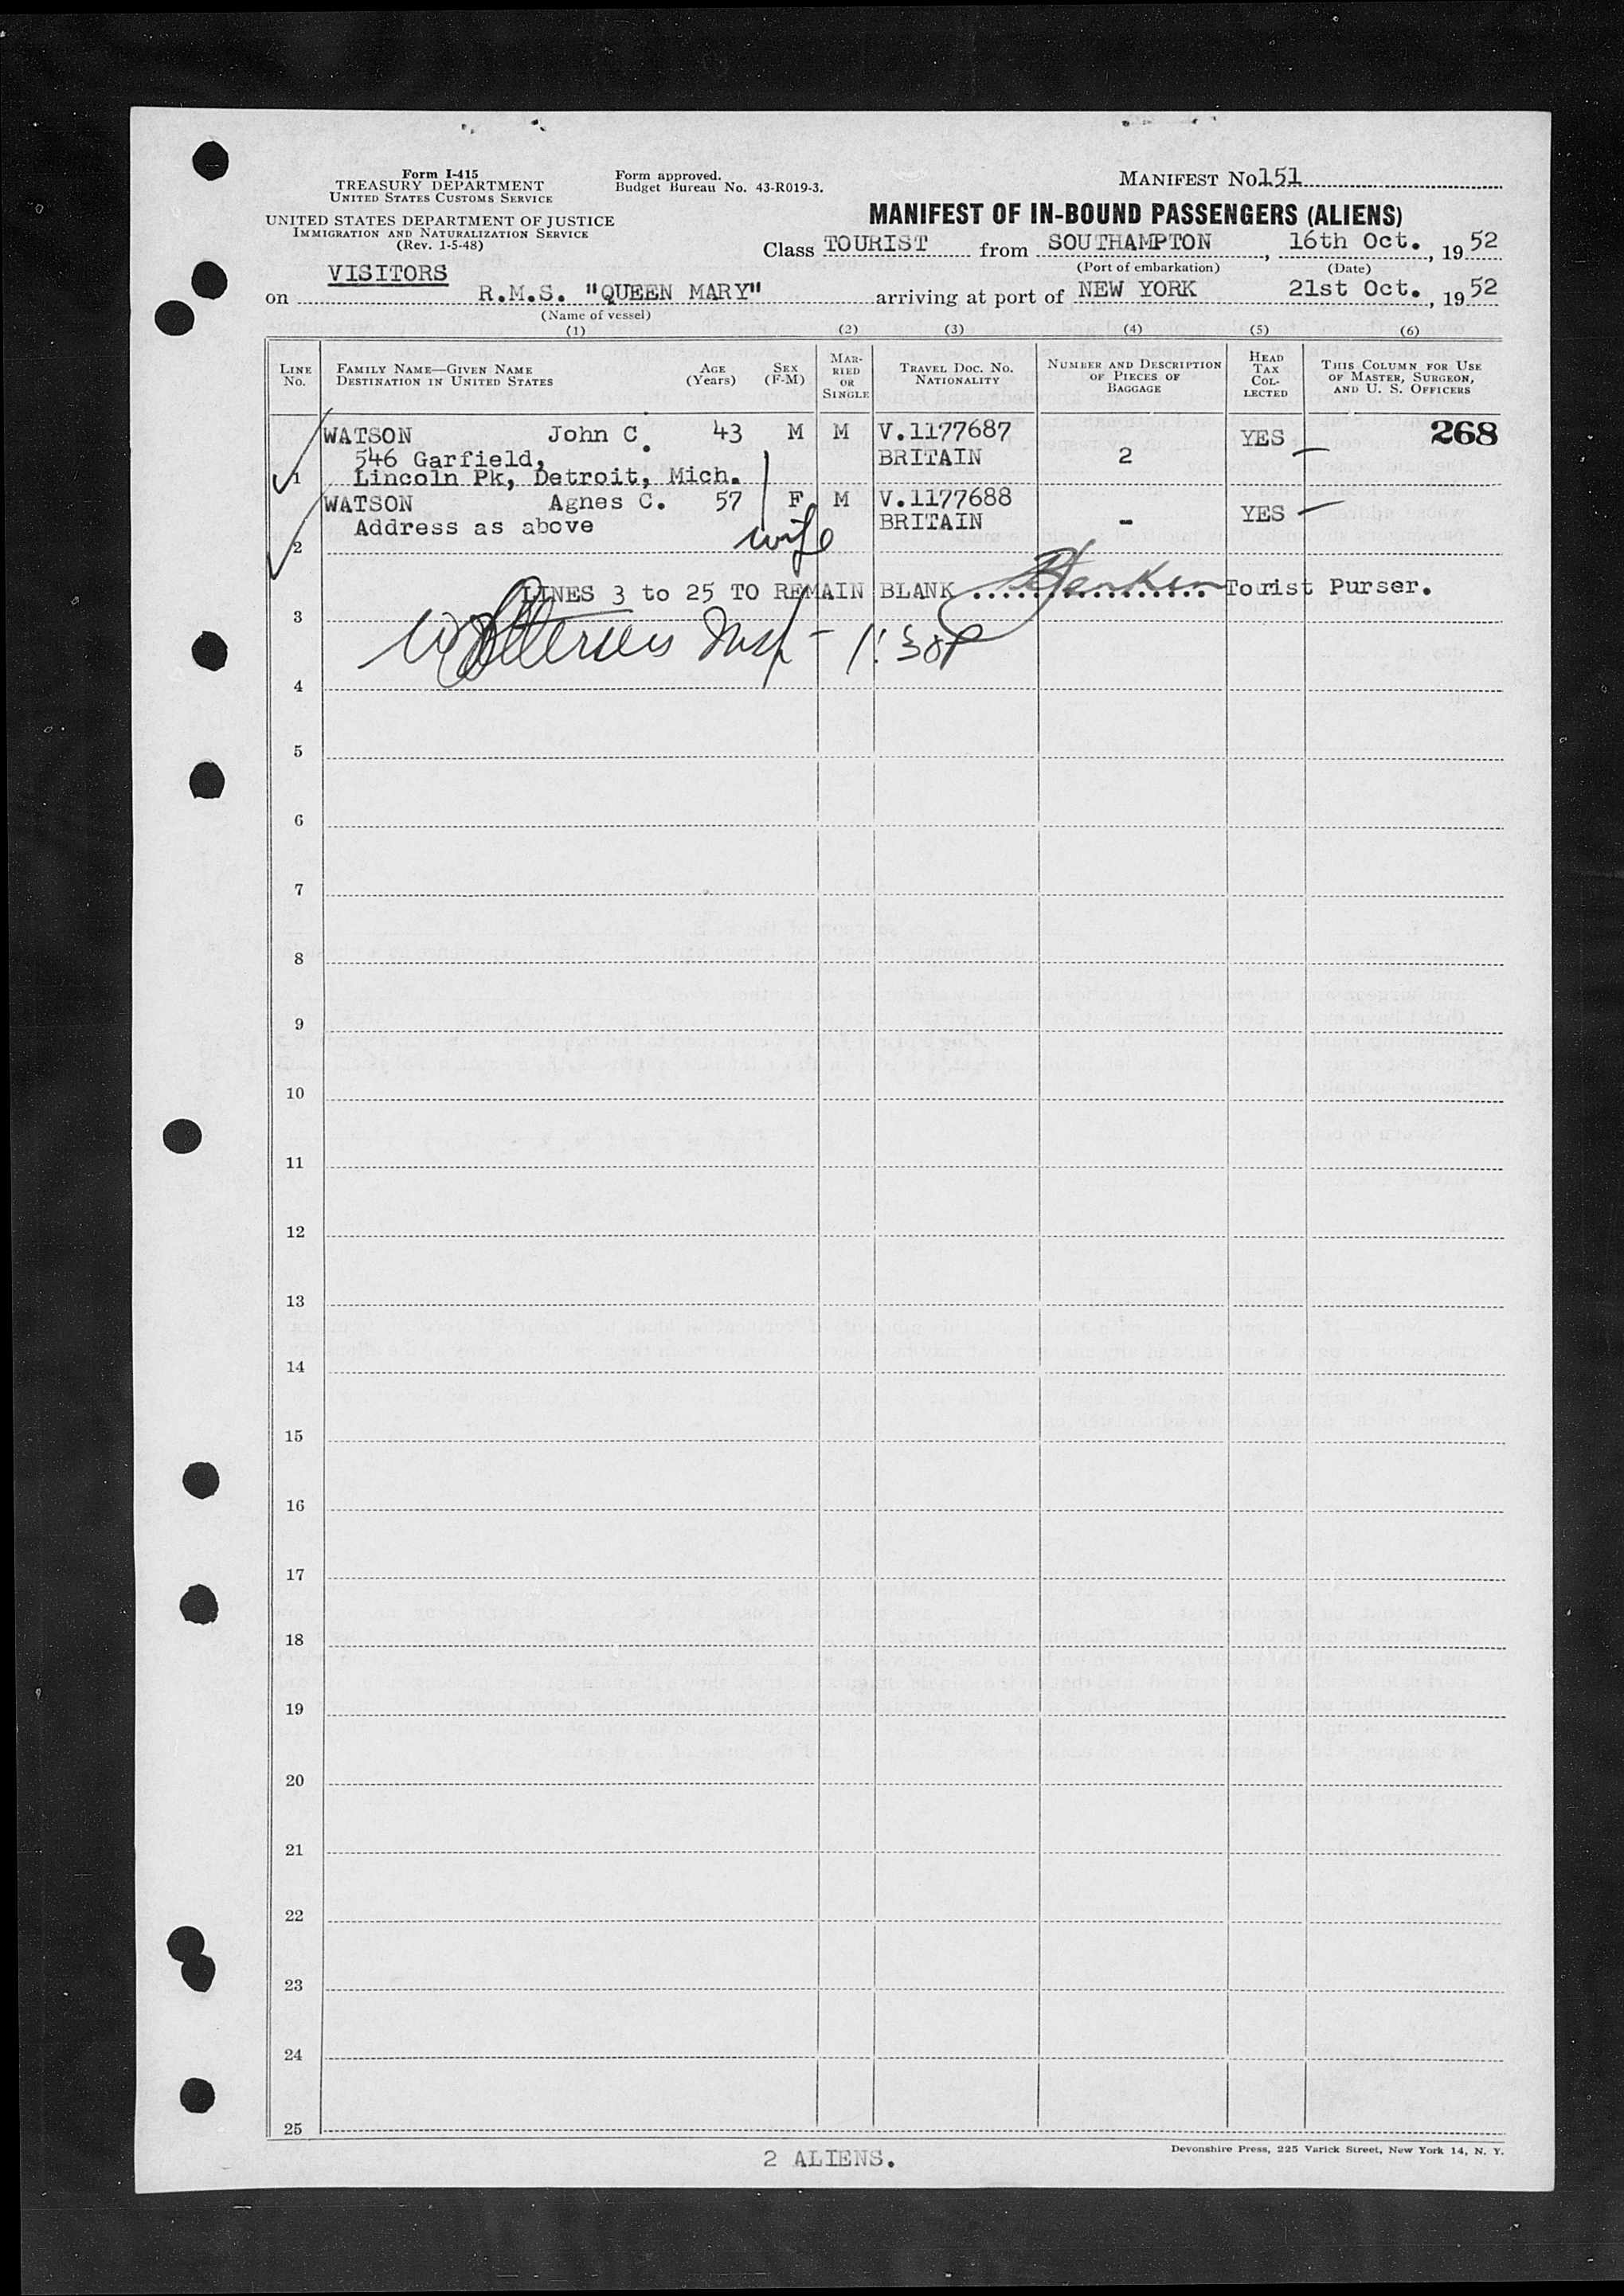 Form I-415
TREASURY DEPARTMENT
UNITED STATES CUSTOMS SERVICE
UNITED STATES DEPARTMENT OF JUSTICE
IMMIGRATION AND NATURALIZATION SERVICE
(Rev. 1-5-48)
Form approved.
Budget Bureau No. 43-R019-3.
MANIFEST No 151
MANIFEST OF IN-BOUND PASSENGERS (ALIENS)
Class TOURIST from SOUTHAMPTON, 16th Oct., 1952
(Port of embarkation) (Date)
VISITORS
on R.M.S. "QUEEN MARY" arriving at port of NEW YORK 21st Oct., 1952
(Name of vessel)
(1) (2) (3) (4) (5) (6)
LINE No.
FAMILY NAME—GIVEN NAME
DESTINATION IN UNITED STATES
AGE (Years)
SEX (F-M)
MARRIED OR SINGLE
TRAVEL DOC. NO. NATIONALITY
NUMBER AND DESCRIPTION OF PIECES OF BAGGAGE
HEAD TAX COLLECTED
THIS COLUMN FOR USE OF MASTER, SURGEON, AND U. S. OFFICERS
WATSON John C. 43 M M V.1177687 YES — 268
546 Garfield, BRITAIN 2
1 Lincoln Pk, Detroit, Mich.
WATSON Agnes C. 57 F M V.1177688 YES —
Address as above BRITAIN -
2 wife
LINES 3 to 25 TO REMAIN BLANK ................. Tourist Purser.
3
Insp - 1:30P
4
5
6
7
8
9
10
11
12
13
14
15
16
17
18
19
20
21
22
23
24
25
2 ALIENS.
Devonshire Press, 225 Varick Street, New York 14, N. Y.